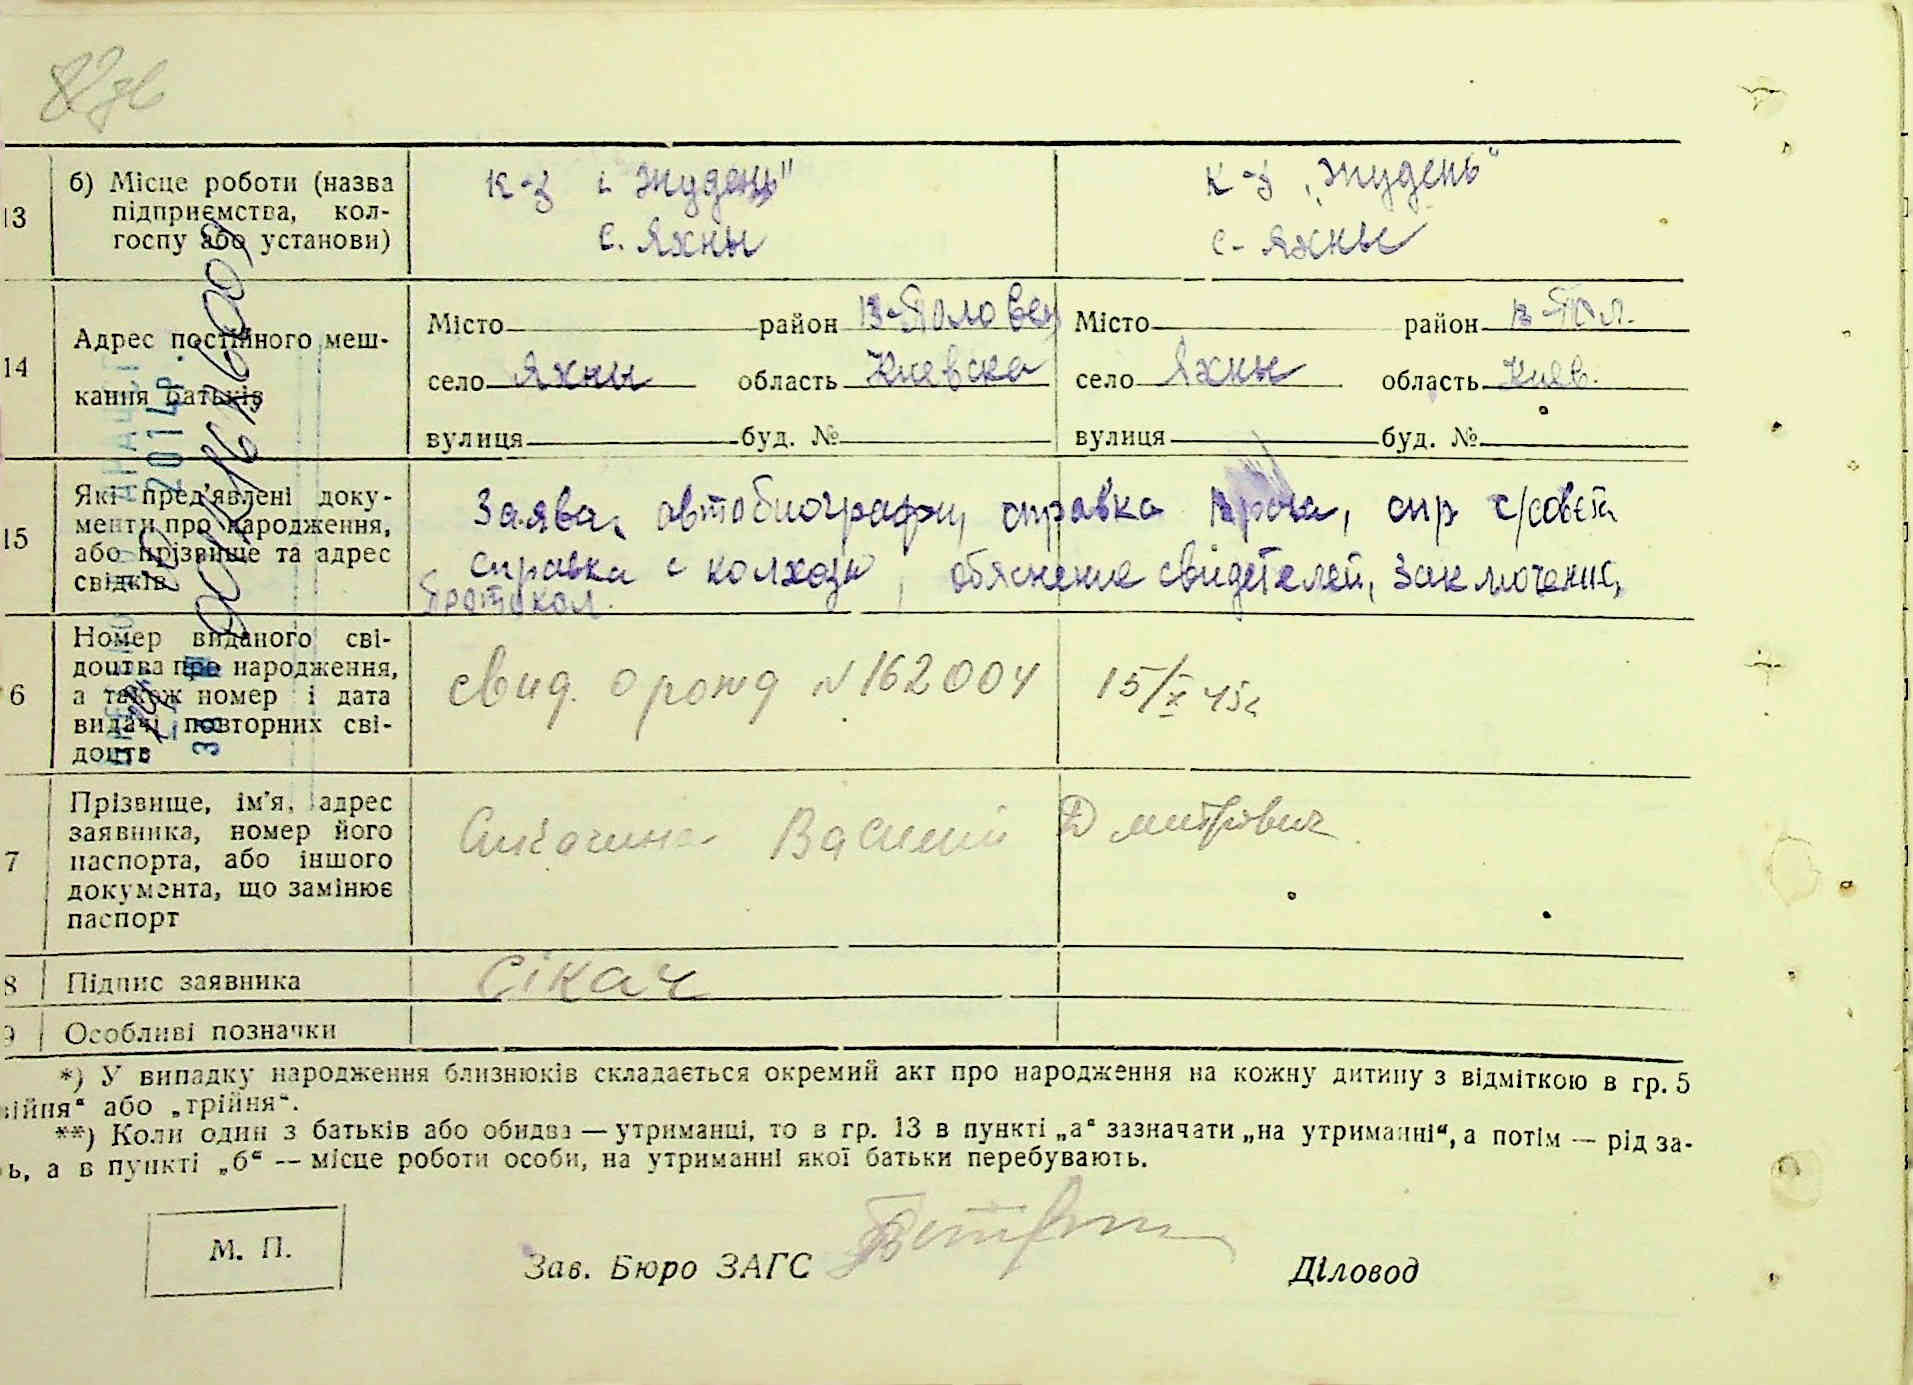 82зв
13 б) Місце роботи (назва підприємства, колгоспу або установи)
к-з „Жудень"
с. Яхны
к-з „Жудень"
с-Яхны
14 Адрес постійного мешкання батьків
Місто район В-Половец
село Яхны область Киевска
вулиця буд. №
Місто район В-Пол.
село Яхны область Киев.
вулиця буд. №
15 Які пред'явлені документи про народження, або прізвище та адрес свідків
Заява, автобиографи, справка врача, спр с/совета
справка с колхозу, обяснение свидетелей, заключение,
протокол.
6 Номер виданого свідоцтва про народження, а також номер і дата видачі повторних свідоцтв
свид. о рожд №162004 15/X 45г
7 Прізвище, ім'я, адрес заявника, номер його паспорта, або іншого документа, що замінює паспорт
Василий Дмитрович
8 Підпис заявника
Сікач
9 Особливі позначки
*) У випадку народження близнюків складається окремий акт про народження на кожну дитину з відміткою в гр. 5
війня" або „трійня".
**) Коли один з батьків або обидва — утриманці, то в гр. 13 в пункті „а" зазначати „на утриманні", а потім — рід за-
ь, а в пункті „б" — місце роботи особи, на утриманні якої батьки перебувають.
М. П.
Зав. Бюро ЗАГС
Діловод
2014 р.